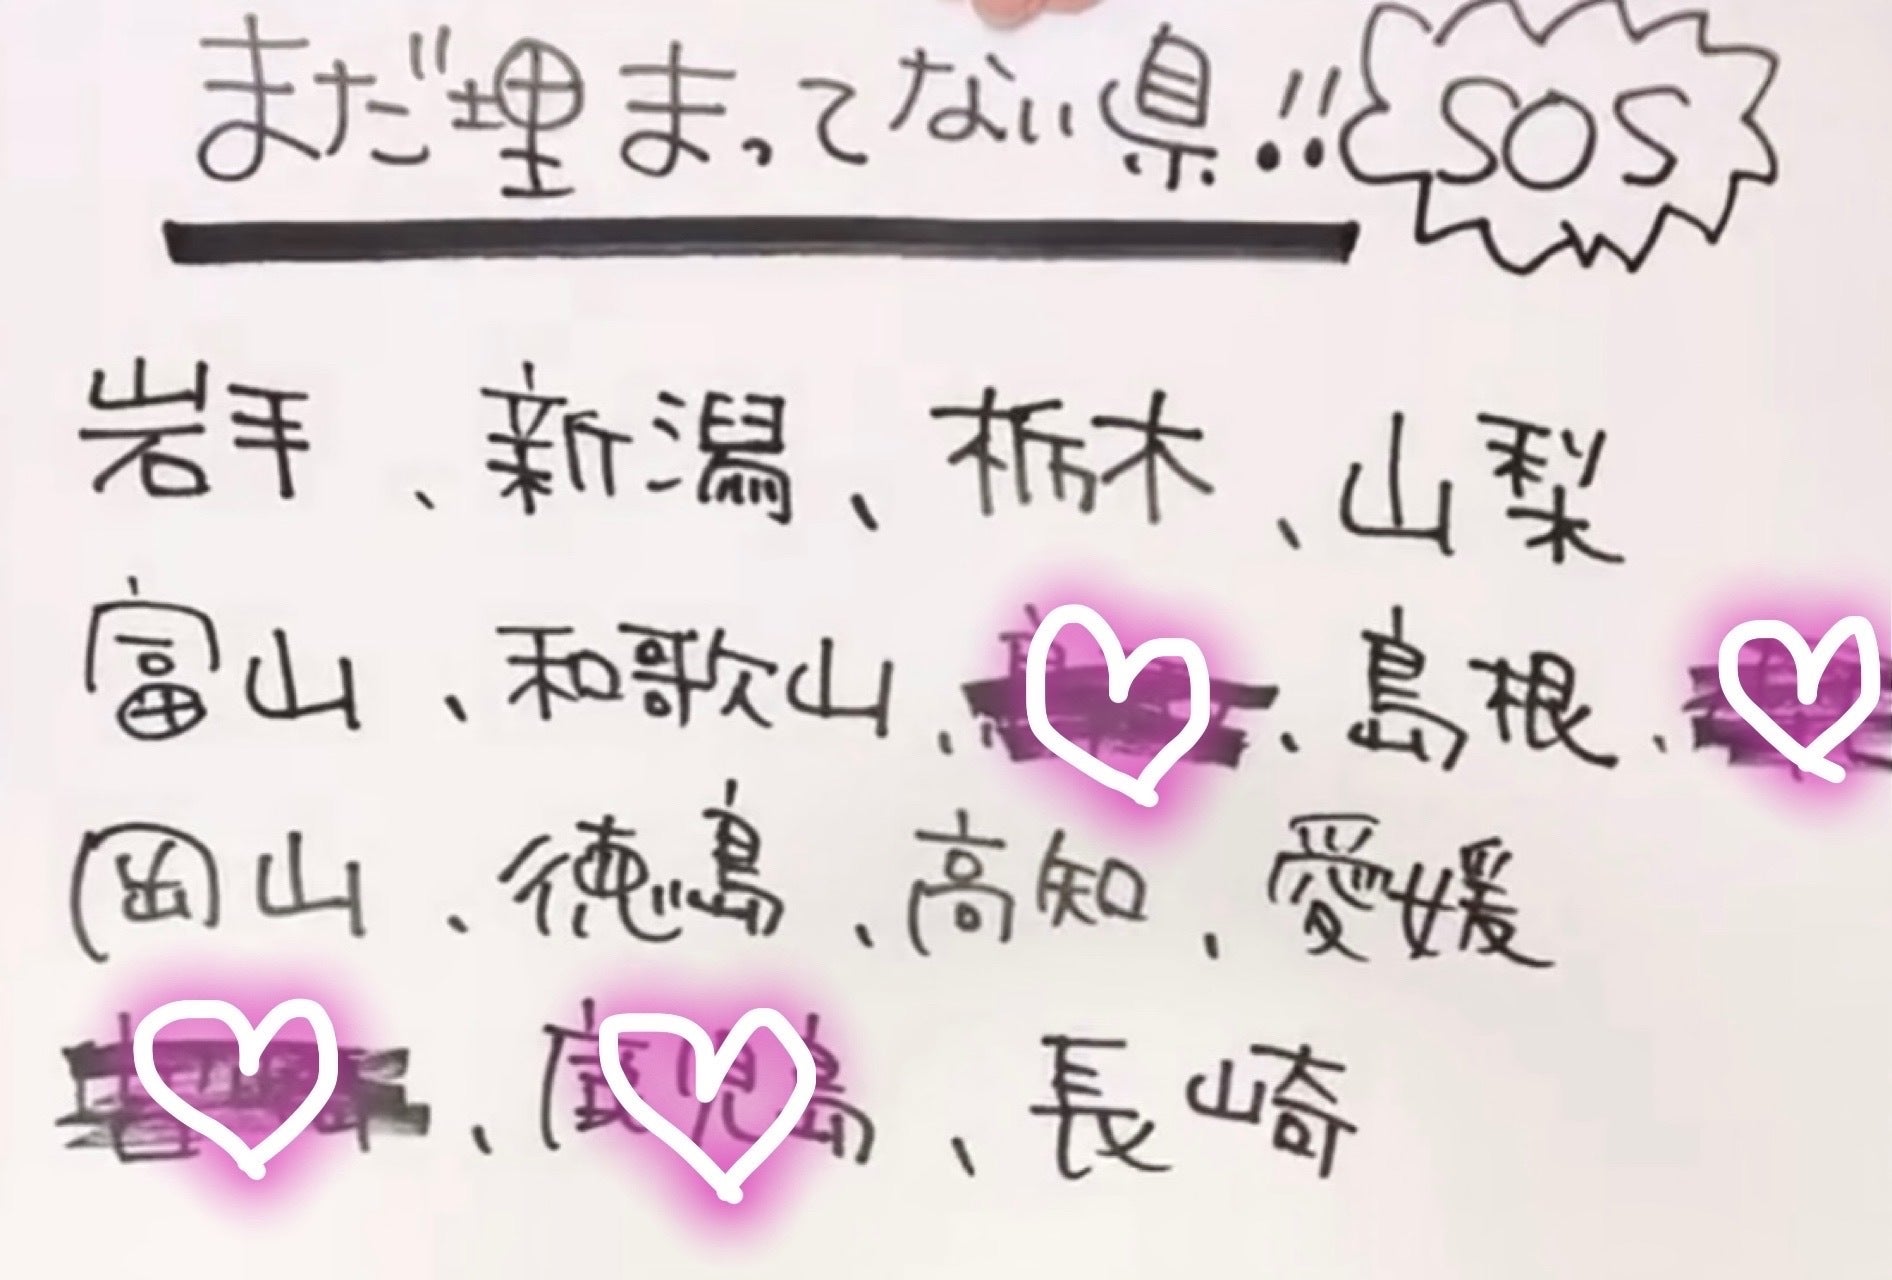 まだ埋まってない県!! SOS
岩手、新潟、栃木、山梨
富山、和歌山、、島根、
岡山、徳島、高知、愛媛
、鹿児島、長崎